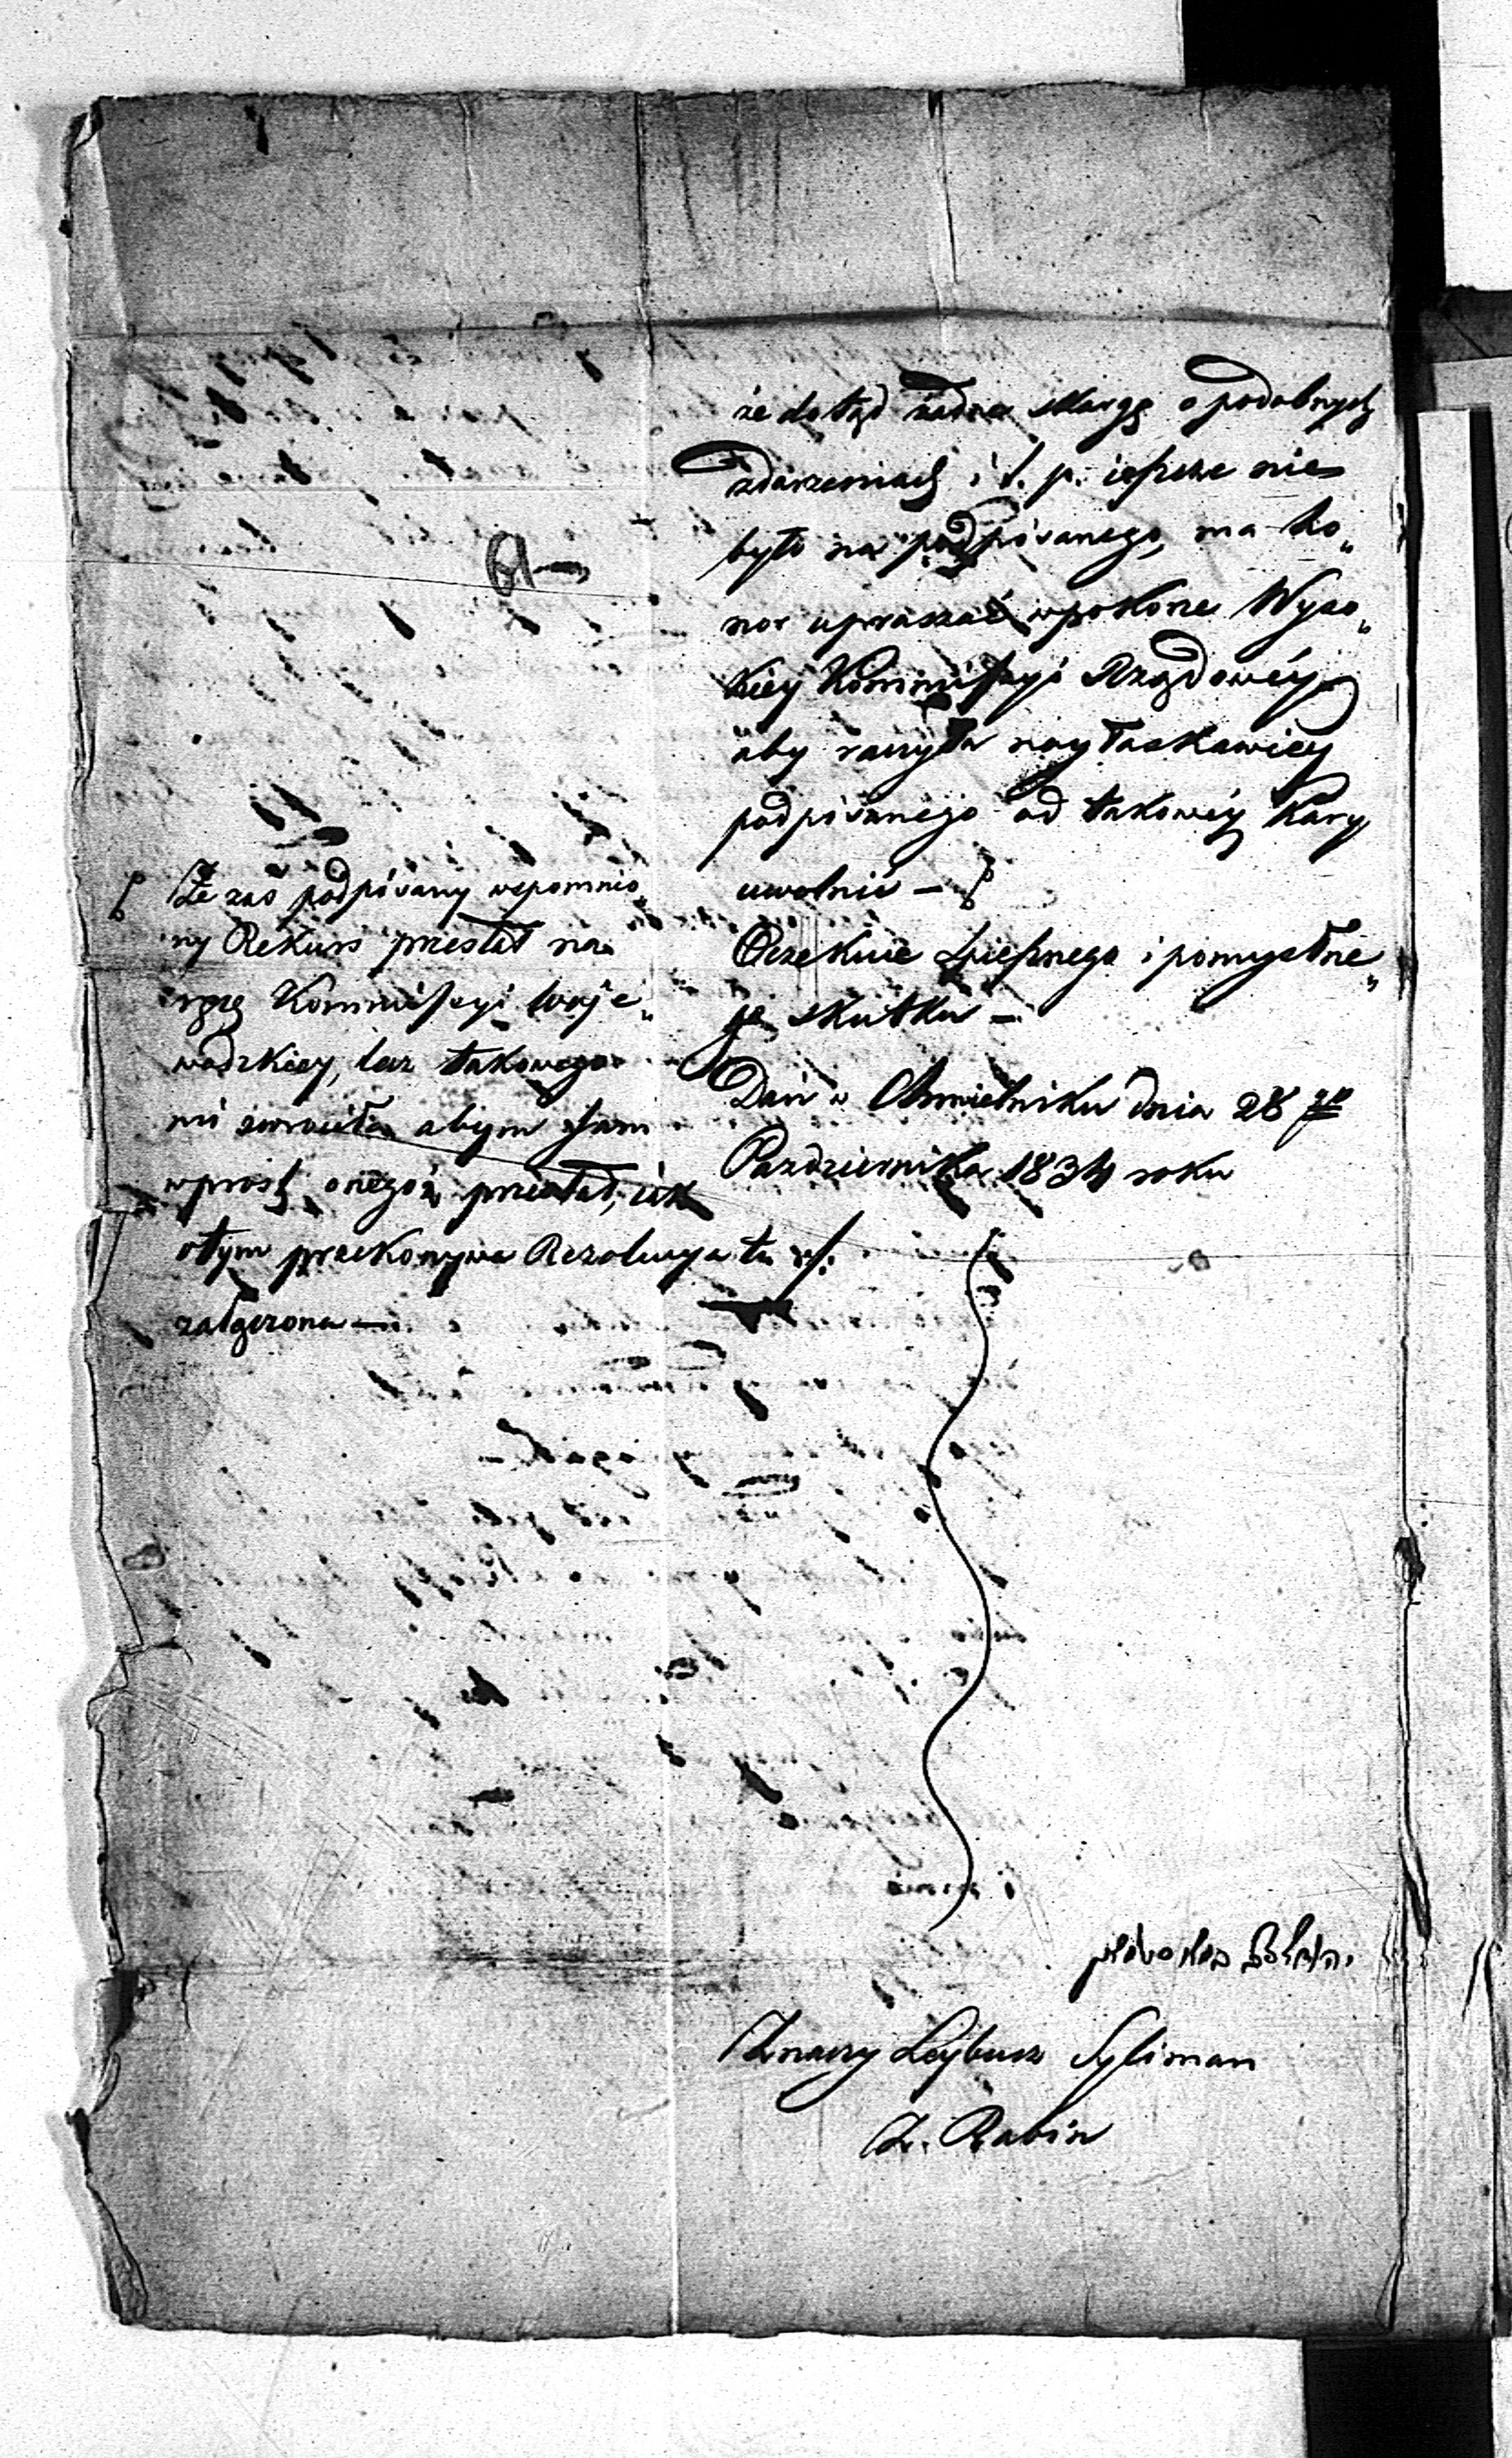 że dotąd żadna skarga o podobnych
zdarzeniach i t. p. ieszcze nie
było na podpisanego, ma ho„
nor upraszać w pokorze Wyso„
kiey Kommissyi Rządowéy
aby raczyła nayłaskawiey
podpisanego od takowéy Kary
uwolnić —
Oczekuie spiesznego i pomyślne„
go skutku —
Dań w Chmielniku dnia 28 go
Pazdziernika 1834 roku
Że zaś podpisany wspomnio„
ny Rekurs przesłał na
ręcę Kommissyi Woje„
wodzkiey, lecz takowego
mi zwróciła abym sam
wprost onegoż przesłał, iak
o tym przekonywa Rezolucya tu
załączona —
Znaczy Leybusz Syliman
Z. Rabin